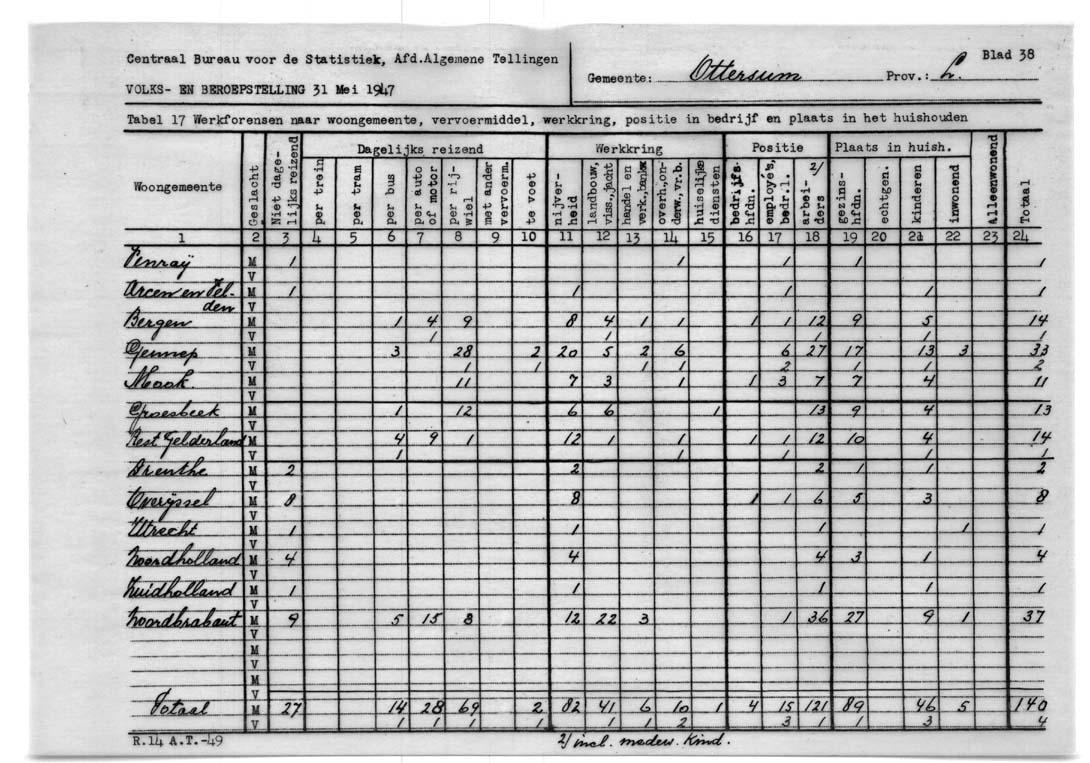 Centraal Bureau voor de Statistiek, Afd.Algemene Tellingen
VOLKS- EN BEROEPSTELLING 31 Mei 1947
Gemeente: Ottersum Prov.: L. Blad 38
Tabel 17 Werkforensen naar woongemeente, vervoermiddel, werkkring, positie in bedrijf en plaats in het huishouden
Woongemeente Geslacht Niet dage-lijks reizend Dagelijks reizend Werkkring Positie Plaats in huish. alleenwonend Totaal
per trein per tram per bus per auto of motor per rij-wiel met ander vervoerm. te voet nijver-heid landbouw, viss.,jacht handel en verk.,bankw overh.,on-derw.,vr.b. huiselijke diensten bedrijfs-hfdn. employé's, bedr.l. arbei-ders 2/ gezins-hfdn. echtgen. kinderen inwonend
1 2 3 4 5 6 7 8 9 10 11 12 13 14 15 16 17 18 19 20 21 22 23 24
Venraÿ M 1 1 1 1 1
V
Arcen en Vel-den M 1 1 1 1 1
V
Bergen M 1 4 9 8 4 1 1 1 1 12 9 5 14
V 1 1 1 1 1
Gennep M 3 28 2 20 5 2 6 6 27 17 13 3 33
V 1 1 1 1 2 1 1 2
Mook M 11 7 3 1 1 3 7 7 4 11
V
Groesbeek M 1 12 6 6 1 13 9 4 13
V
Rest Gelderland M 4 9 1 12 1 1 1 1 12 10 4 14
V 1 1 1 1 1
Drenthe M 2 2 2 1 1 2
V
Overÿssel M 8 8 1 1 6 5 3 8
V
Utrecht M 1 1 1 1 1
V
Noordholland M 4 4 4 3 1 4
V
Zuidholland M 1 1 1 1 1
V
Noordbrabant M 9 5 15 8 12 22 3 1 36 27 9 1 37
V
M
V
M
V
Totaal M 27 14 28 69 2 82 41 6 10 1 4 15 121 89 46 5 140
V 1 1 1 1 1 1 2 3 1 1 3 4
R.14 A.T.-49
2/ incl. medew. Kind.